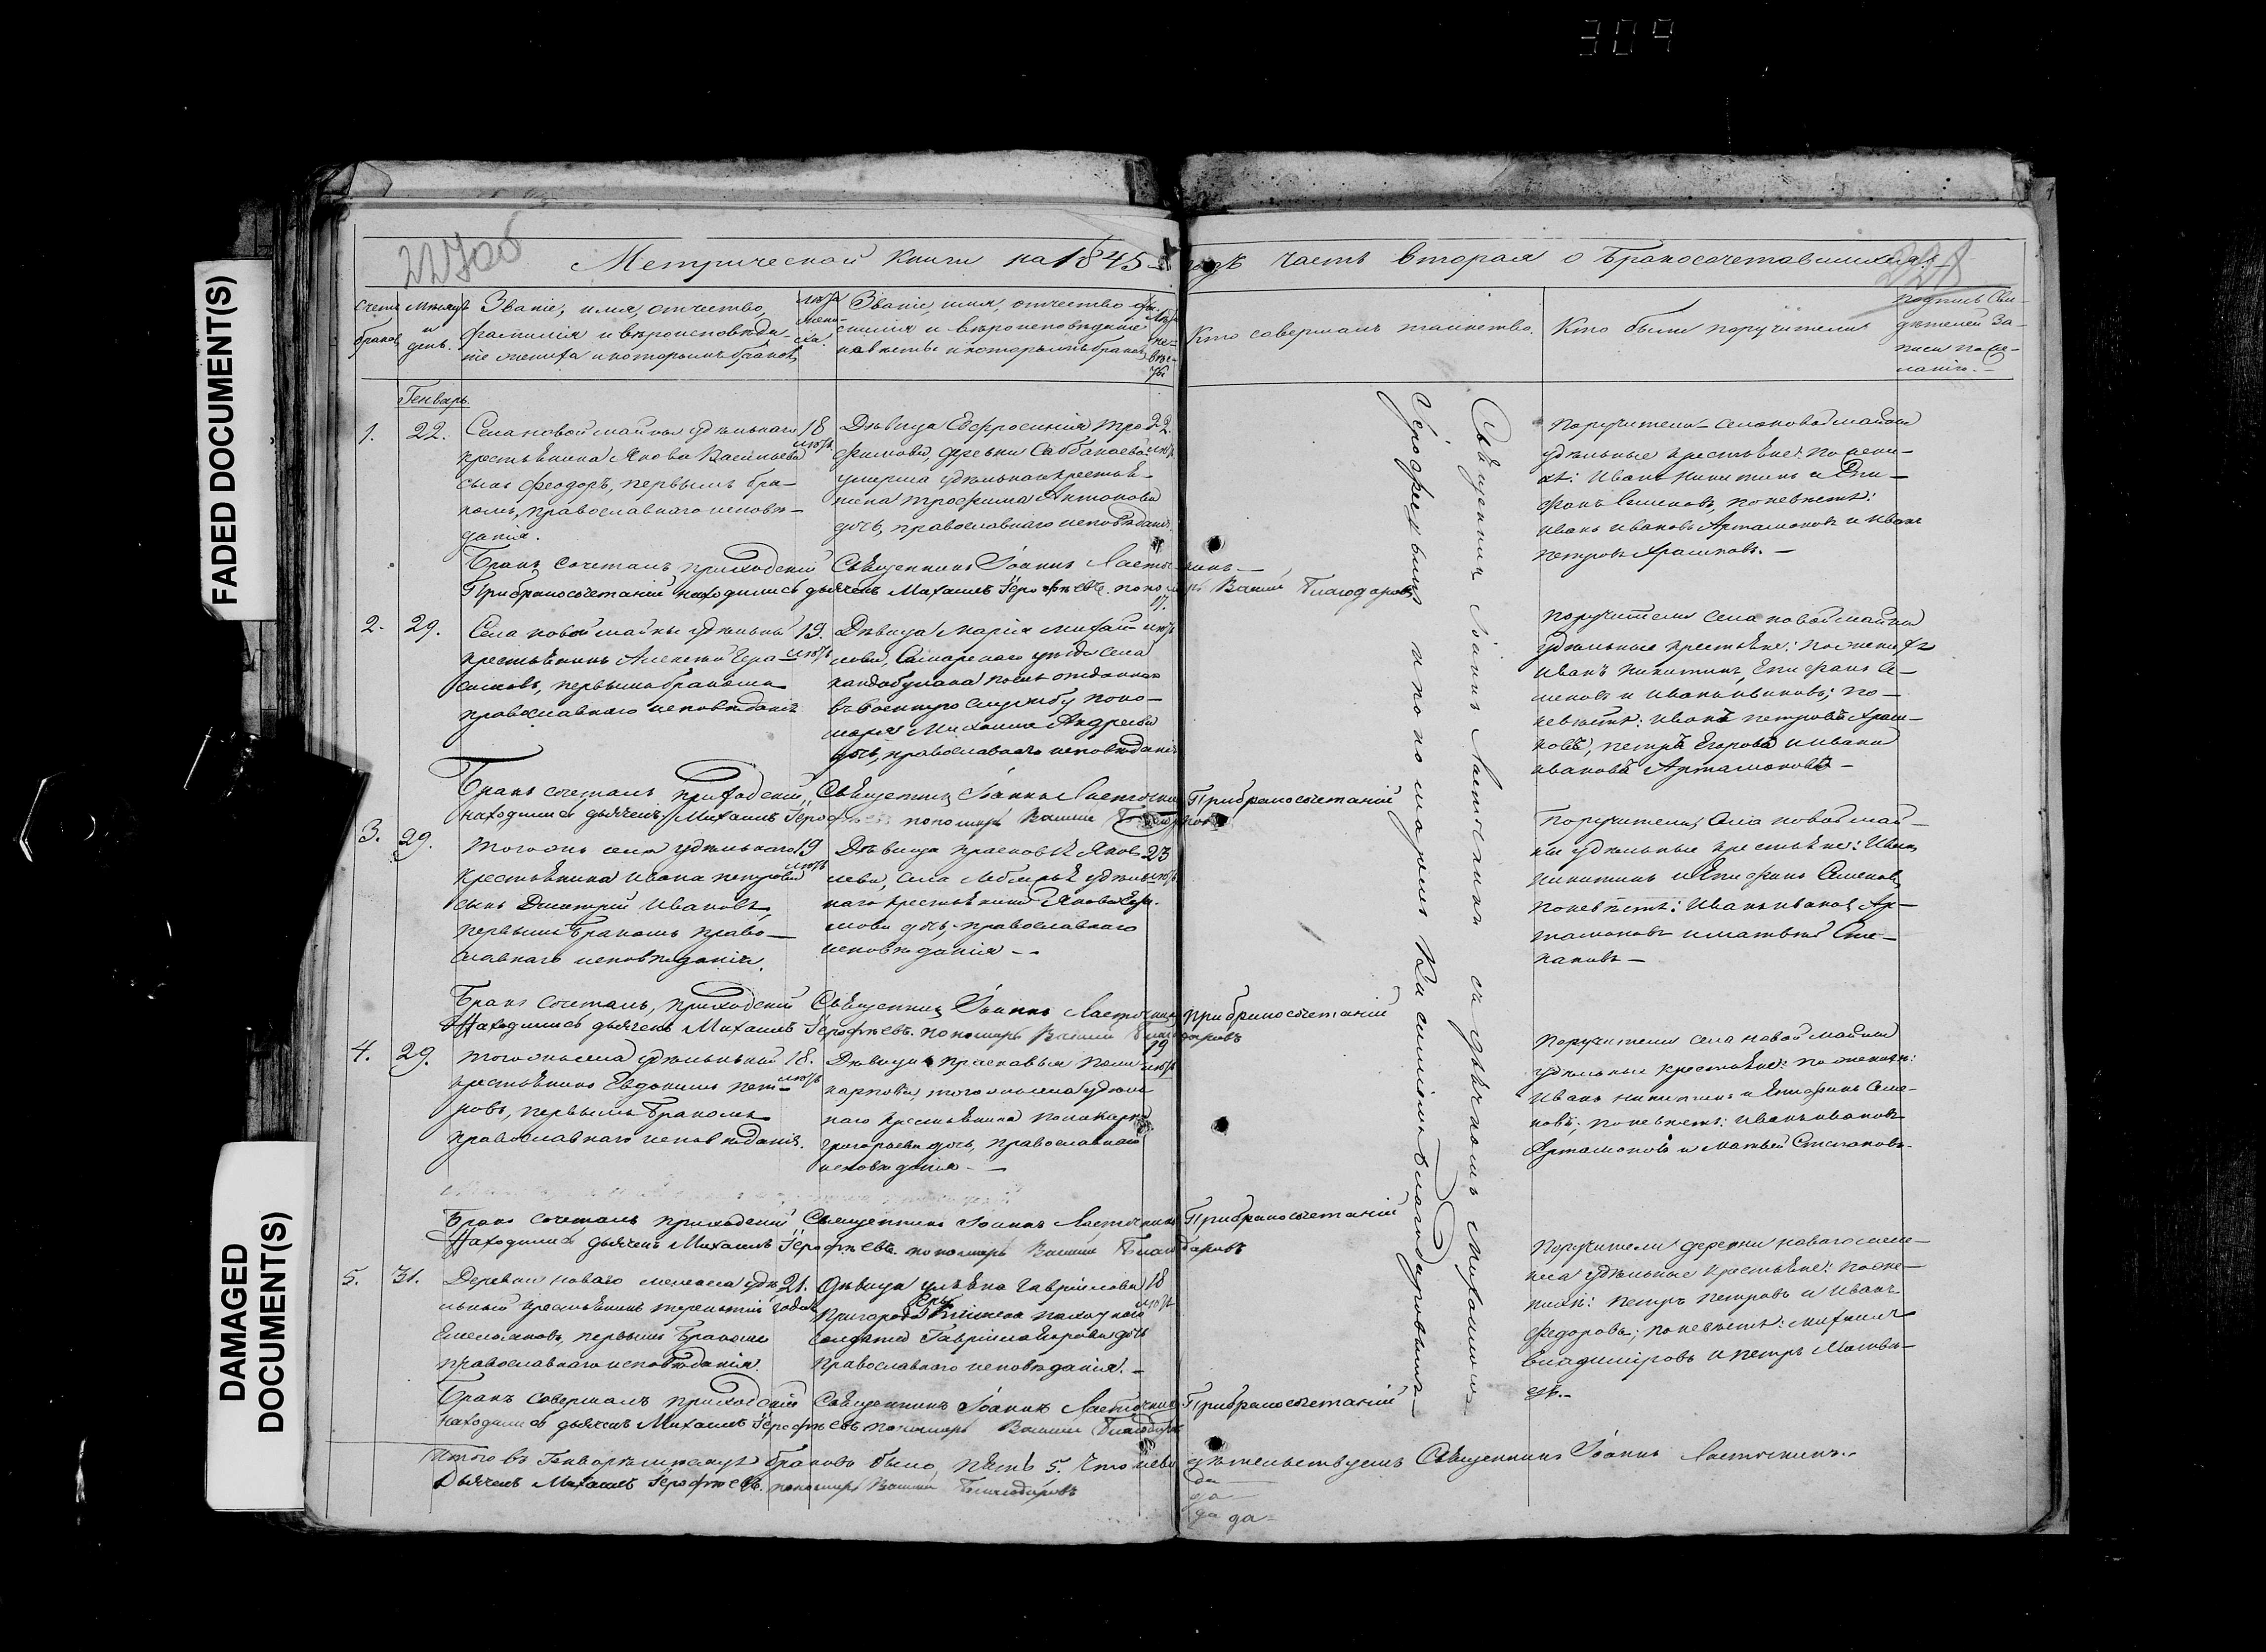 309
FADED DOCUMENT(S)
DAMAGED
DOCUMENT(S)
227об
228
Метрической книги на 1845 годъ часть вторая о бракосочетавшихся
Счетъ браковъ
Мѣсяцъ и день.
Званіе, имя, отчество,
фамилія и вѣроисповѣда-
ніе жениха и которымъ бракомъ
лѣта жени-ха.
Званіе, имя, отчество фа-
милія и вѣроисповѣданіе
невѣсты и которымъ бракомъ
лѣта не-вѣс-ты
Кто совершалъ таинство.
Кто были поручители
Подпись сви-
дѣтелей за-
писи по же-
ланію.
Генварь.
1.
22.
Села новой майны удѣльнаго
крестьянина Якова Васильева
сынъ Феодоръ, первымъ бра-
комъ, православнаго исповѣ-
данія.
18
лѣтъ.
Дѣвица Евфросинія Тро-
фимова, деревни
умерша удѣльнаго крестья-
нина Трофима Антонова
дочь, православнаго исповѣданія.
22.
лѣтъ
Поручители села новой майны
удѣльные крестьяне: по жени-
хѣ: Иванъ Никитинъ и Епи-
фанъ Семеновъ, по невѣстѣ:
Иванъ Ивановъ Артамоновъ и Иванъ
Петровъ Храмковъ. —
Бракъ сочеталъ приходскій Священникъ Іоаннъ Ласточкинъ —
При бракосочетаніи находились дьячекъ Михаилъ Іерофѣевъ. пономарь Благодаровъ
2.
29.
Села новой майны удѣльный
крестьянинъ Алексѣй Гера-
симовъ, первымъ бракомъ
православнаго исповѣданія
19.
лѣтъ
Дѣвица Марія Михай-
лова, Самарскаго уѣзда села
кандабулака послѣ отданнаго
въ военную службу поно-
маря Михаила Андреева
дочь, православнаго исповѣданія
17.
лѣтъ
Поручители села новой майны
удѣльные крестьяне: по женихѣ
Иванъ Никитинъ, Епифанъ Се-
меновъ и Иванъ Ивановъ; по
невѣстѣ: Иванъ Петровъ Храм-
ковъ, Петръ Егоровъ и Иванъ
Ивановъ Артамоновъ —
Бракъ сочеталъ приходскій Священникъ Іоаннъ Ласточкинъ При бракосочетаніи
находились дьячекъ Михаилъ Іерофѣевъ пономарь
3.
29.
Того же села удѣльнаго
крестьянина Ивана Петрова
сынъ Дмитрій Ивановъ,
первымъ бракомъ право-
славнаго исповѣданія.
19
лѣтъ
Дѣвица Прасковья Яков-
лева, села удѣль-
наго крестьянина Якова
дочь, православнаго
исповѣданія —
23
лѣтъ.
Поручители, села новой май-
ны удѣльные крестьяне: Иванъ
Никитинъ и Епифанъ Семеновъ
по невѣстѣ: Иванъ Ивановъ Ар-
тамоновъ и Матвѣй Сте-
пановъ —
Бракъ сочеталъ, приходскій Священникъ Іоаннъ Ласточкинъ При бракосочетаніи
Находились дьячекъ Михаилъ Іерофѣевъ. пономарь Благодаровъ
4.
29.
Того же села удѣльный
крестьянинъ Евдокимъ Пет-
ровъ, первымъ бракомъ
православнаго исповѣданія.
18.
лѣтъ
Дѣвица Прасковья Поли-
карпова, того же села удѣль
наго крестьянина Поликарпа
Григорьева дочь, православнаго
исповѣданія —
19
лѣтъ
Поручители села новой майны
удѣльные крестьяне: по женихѣ:
Иванъ Никитинъ и Епифанъ Семе-
новъ; по невѣстѣ: Иванъ Ивановъ
Артамоновъ и Матвѣй Степановъ
Бракъ сочеталъ приходскій Священникъ Іоаннъ Ласточкинъ При бракосочетаніи
Находились дьячекъ Михаилъ Іерофѣевъ пономарь Благодаровъ
5.
31.
Деревни новаго удѣ
льный крестьянинъ Терентій
Емельяновъ, первымъ бракомъ
православнаго исповѣданія.
21.
года
Дѣвица Ульяна Гаврилова
Пригорода
солдата Гаврила дочь
православнаго исповѣданія. —
18
лѣтъ
Поручители деревни новаго
удѣльные крестьяне: по же-
нихѣ: Петръ Петровъ и Иванъ
Федоровъ; по невѣстѣ: Михаилъ
Владиміровъ и Петръ Матвѣ-
евъ. —
Бракъ совершалъ приходскій Священникъ Іоаннъ Ласточкинъ При бракосочетаніи
находились дьячекъ Михаилъ Іерофѣевъ пономарь
Священникъ Іоаннъ Ласточкинъ съ дьячкомъ Михаиломъ
Іерофѣевымъ и пономаремъ Благодаровымъ
Итого въ Генварѣ мѣсяцѣ браковъ было пять 5. Что и свидѣтельствуемъ Священникъ Іоаннъ Ласточкинъ.
Дьячекъ Михаилъ Іерофѣевъ. пономарь Благодаровъ
да
да
да да